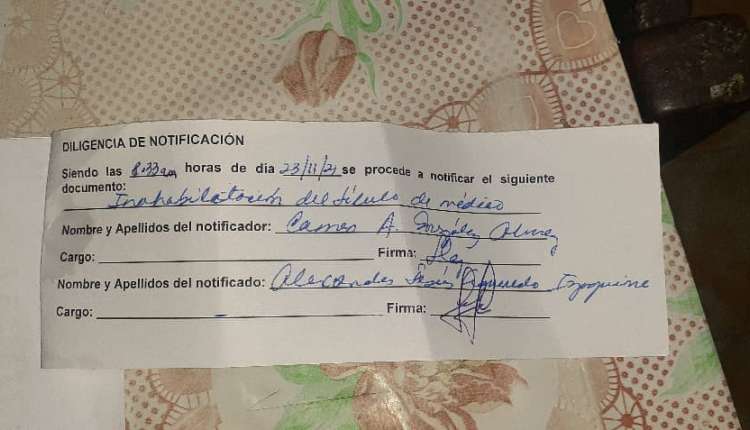 DILIGENCIA DE NOTIFICACIÓN
Siendo las 8:33am horas de dia 23/11/21 se procede a notificar el siguiente
documento:
Inhabilitación del título de médico
Nombre y Apellidos del notificador: Carmen A. González
Cargo: Firma:
Nombre y Apellidos del notificado: Alexander Jesús Figueredo Izaguirre
Cargo: Firma: